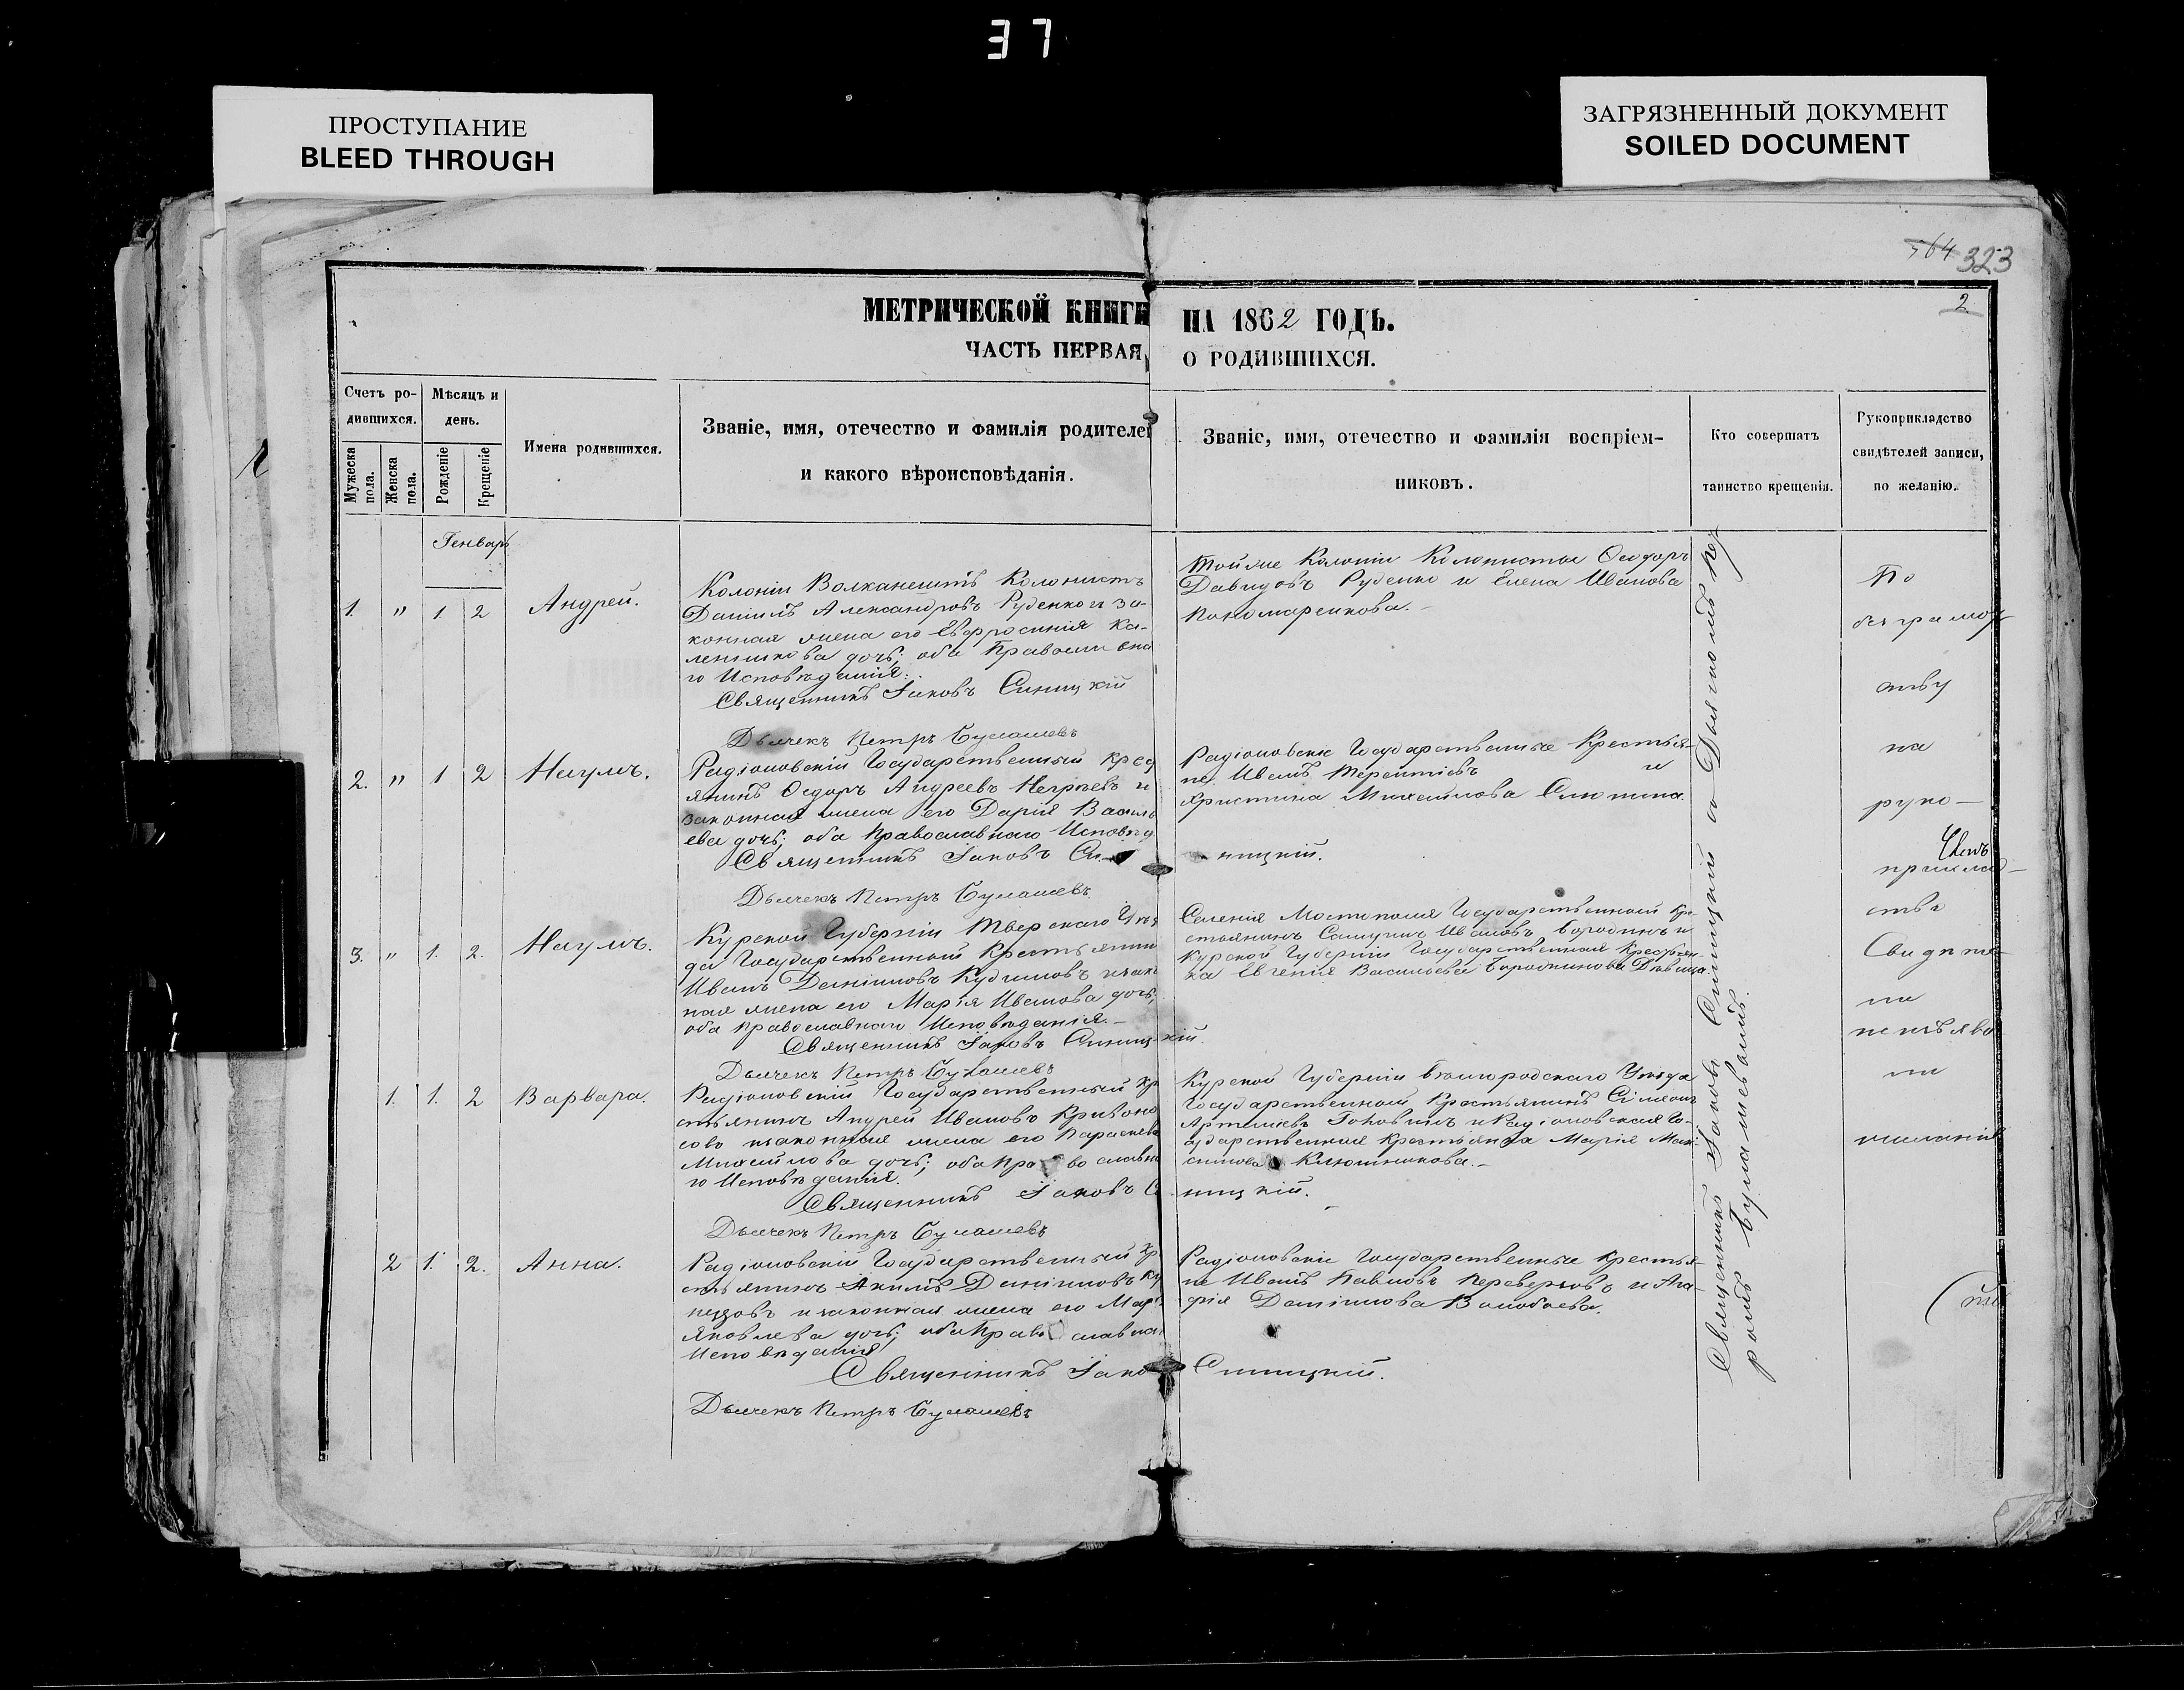 37
ПРОСТУПАНИЕ
BLEED THROUGH
ЗАГРЯЗНЕННЫЙ ДОКУМЕНТ
SOILED DOCUMENT
564 323
2
МЕТРИЧЕСКОЙ КНИГИ НА 1862 ГОДЪ.
ЧАСТЬ ПЕРВАЯ, О РОДИВШИХСЯ.
Счетъ ро-
дившихся.
Мужеска пола.
Женска пола.
Мѣсяцъ и
день.
Рожденіе
Крещеніе
Имена родившихся.
Званіе, имя, отечество и фамилія родителей
и какого вѣроисповѣданія.
Званіе, имя, отечество и фамилія воспріем-
никовъ.
Кто совершатъ
таинство крещенія.
Рукоприкладство
свидѣтелей записи,
по желанію.
Генварь
1. " 1 2 Андрей.
Колоніи Волканештъ Колонистъ
Даніилъ Александровъ Руденко и за-
конная жена его Евфросинія Ка-
леникова дочь; оба Православна
го Исповѣданія.
Священникъ Іаковъ Синицкій
Дьячекъ Петръ Булашевъ
Тойже Колоніи Колонисты Ѳеодоръ
Давидовъ Руденко и Елена Иванова
Пономаренкова.
2. " 1 2 Наумъ.
Радіоновскій Государственный Крес
янинъ Ѳедоръ Андреевъ Негрѣевъ и
законная жена его Дарія Василь
ева дочь; оба Православнаго Исповѣд
Священникъ Іаковъ Синицкій.
Дьячекъ Петръ Булашевъ
Радіоновскіе Государственные Крестья-
не Иванъ Терентіевъ и
Христина Михайлова Слюнина.
3. " 1. 2. Наумъ.
Курской Губерніи Тверскаго Уѣз
да Государственный Крестьянин
Иванъ Даніиловъ Кудиновъ изакон
ная жена его Марія Иванова дочь,
оба Православнаго Исповѣданія.
Священникъ Іаковъ Синицкій.
Дьячекъ Петръ Булашевъ
Селенія Государственный Кре-
стьянинъ Ивановъ Бородинъ и
Курской Губерніи Государственная Крестьян-
ка Евгенія Васильева Бородинова Дѣвица.
1. 1. 2 Варвара.
Радіоновскій Государственный Кр
стьянинъ Андрей Ивановъ Кривоно
совъ изаконная жена его Параскева
Михайлова дочь; оба Православна
го Исповѣданія.
Священникъ Іаковъ Синицкій.
Дьячекъ Петръ Булашевъ
Курской Губерніи Бѣлгородскаго Уѣзда
Государственный Крестьянинъ Сѵмеонъ
Артемьевъ и Радіоновская Го-
сударственная Крестьянка Марія Мак-
симова Ключникова.
2 1. 2. Анна.
Радіоновскій Государственный Кр
стьянинъ Акимъ Даніиловъ
изаконная жена его Марѳ
Яковлева дочь; оба Православнаго
Исповѣданія
Священникъ Іаковъ Синицкій.
Дьячекъ Петръ Булашевъ
Радіоновскіе Государственные Крестья-
не Иванъ Павловъ Переверзовъ и Ага-
фія Даніилова Волобоева.
Священникъ Іаковъ Синицкій со Дьячкомъ Пет-
ромъ Булашевымъ.
По
безграмот
ству
на
руко-
приклад-
ство
Свидѣте-
ли
неизъяви
ли
желанія